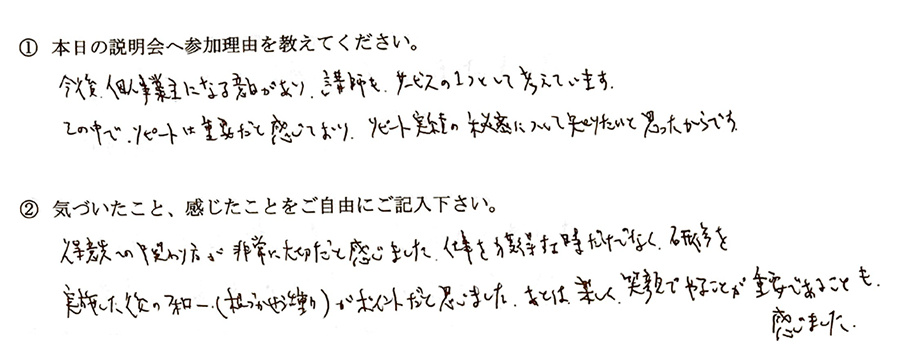 ① 本日の説明会へ参加理由を教えてください。
今後、個人事業主になる意向があり、講師も、サービスの1つとして考えています。
その中で、リピートは重要だと感じており、リピート実績の秘密について知りたいと思ったからです。
② 気づいたこと、感じたことをご自由にご記入下さい。
の関わり方が非常に大切だと感じました。仕事を獲得する時だけでなく、研修を
実施した後のフォロー、()がポイントだと思いました。あとは、楽しく、笑顔でやることが重要であることも、
感じました。